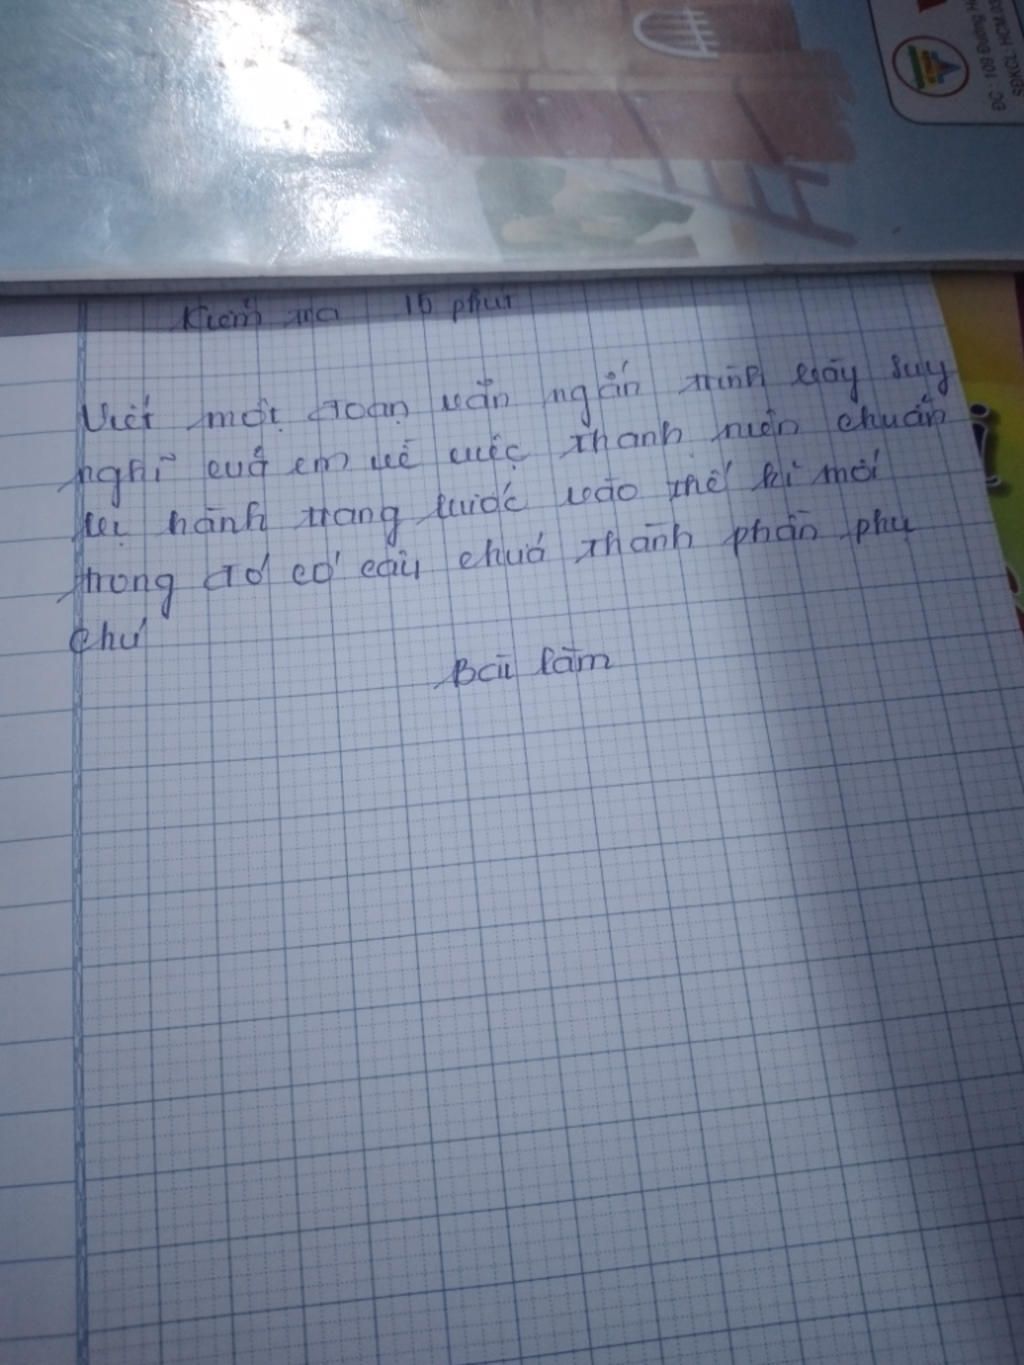 ĐC : 109 Đường H
SĐKCL: HCM.03
Kiểm tra 15 phút
Viết một đoạn văn ngắn trình bày suy
nghĩ của em về việc thanh niên chuẩn
bị hành trang bước vào thế kỉ mới
trong đó có câu chứa thành phần phụ
chú
Bài làm